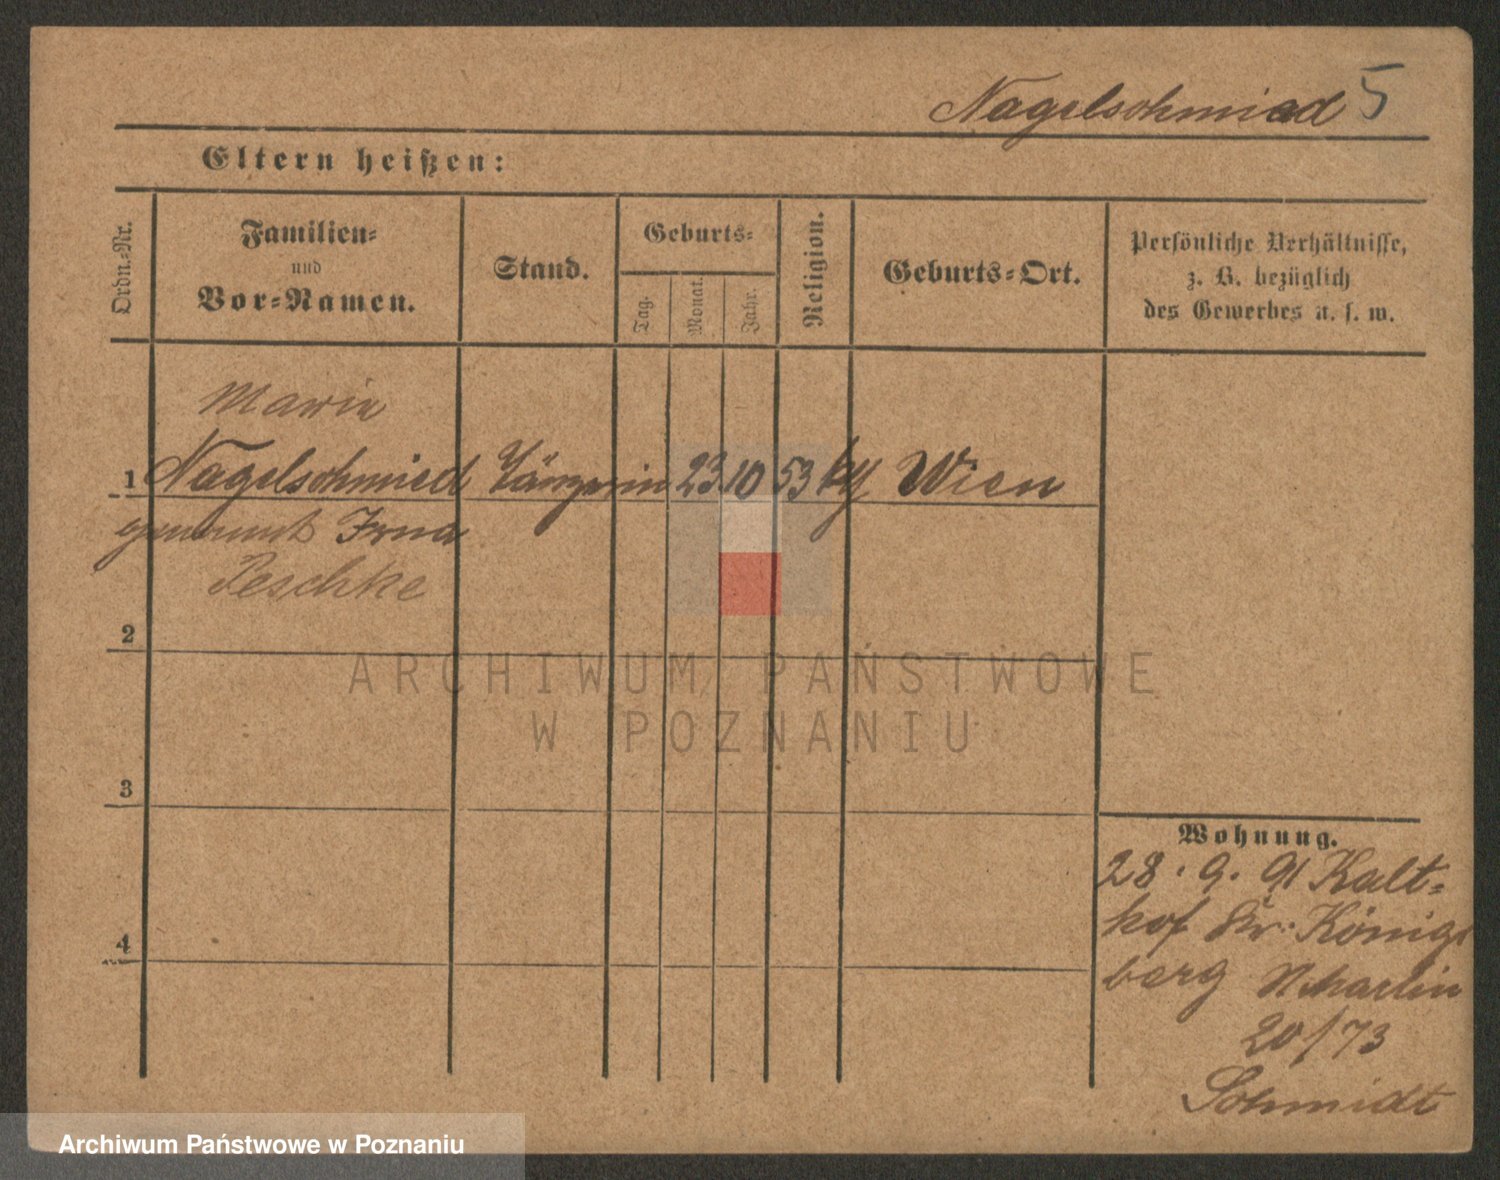 Nagelschmied 5
Eltern heißen:
Ordn.-Nr.
Familien=
und
Vor=Namen.
Stand.
Geburts=
Tag.
Monat.
Jahr.
Religion.
Geburts=Ort.
Persönliche Verhältnisse,
z. B. bezüglich
des Gewerbes u. s. w.
Marie
1 Nagelschmied Tänzerin 23 10 53 Wien
genannt Irna
Peschke
2
3
4
ARCHIWUM PAŃSTWOWE
W POZNANIU
Wohnung.
28. 9. 91 Kalt=
hof Königs
berg Martin
20/73
Schmidt
Archiwum Państwowe w Poznaniu